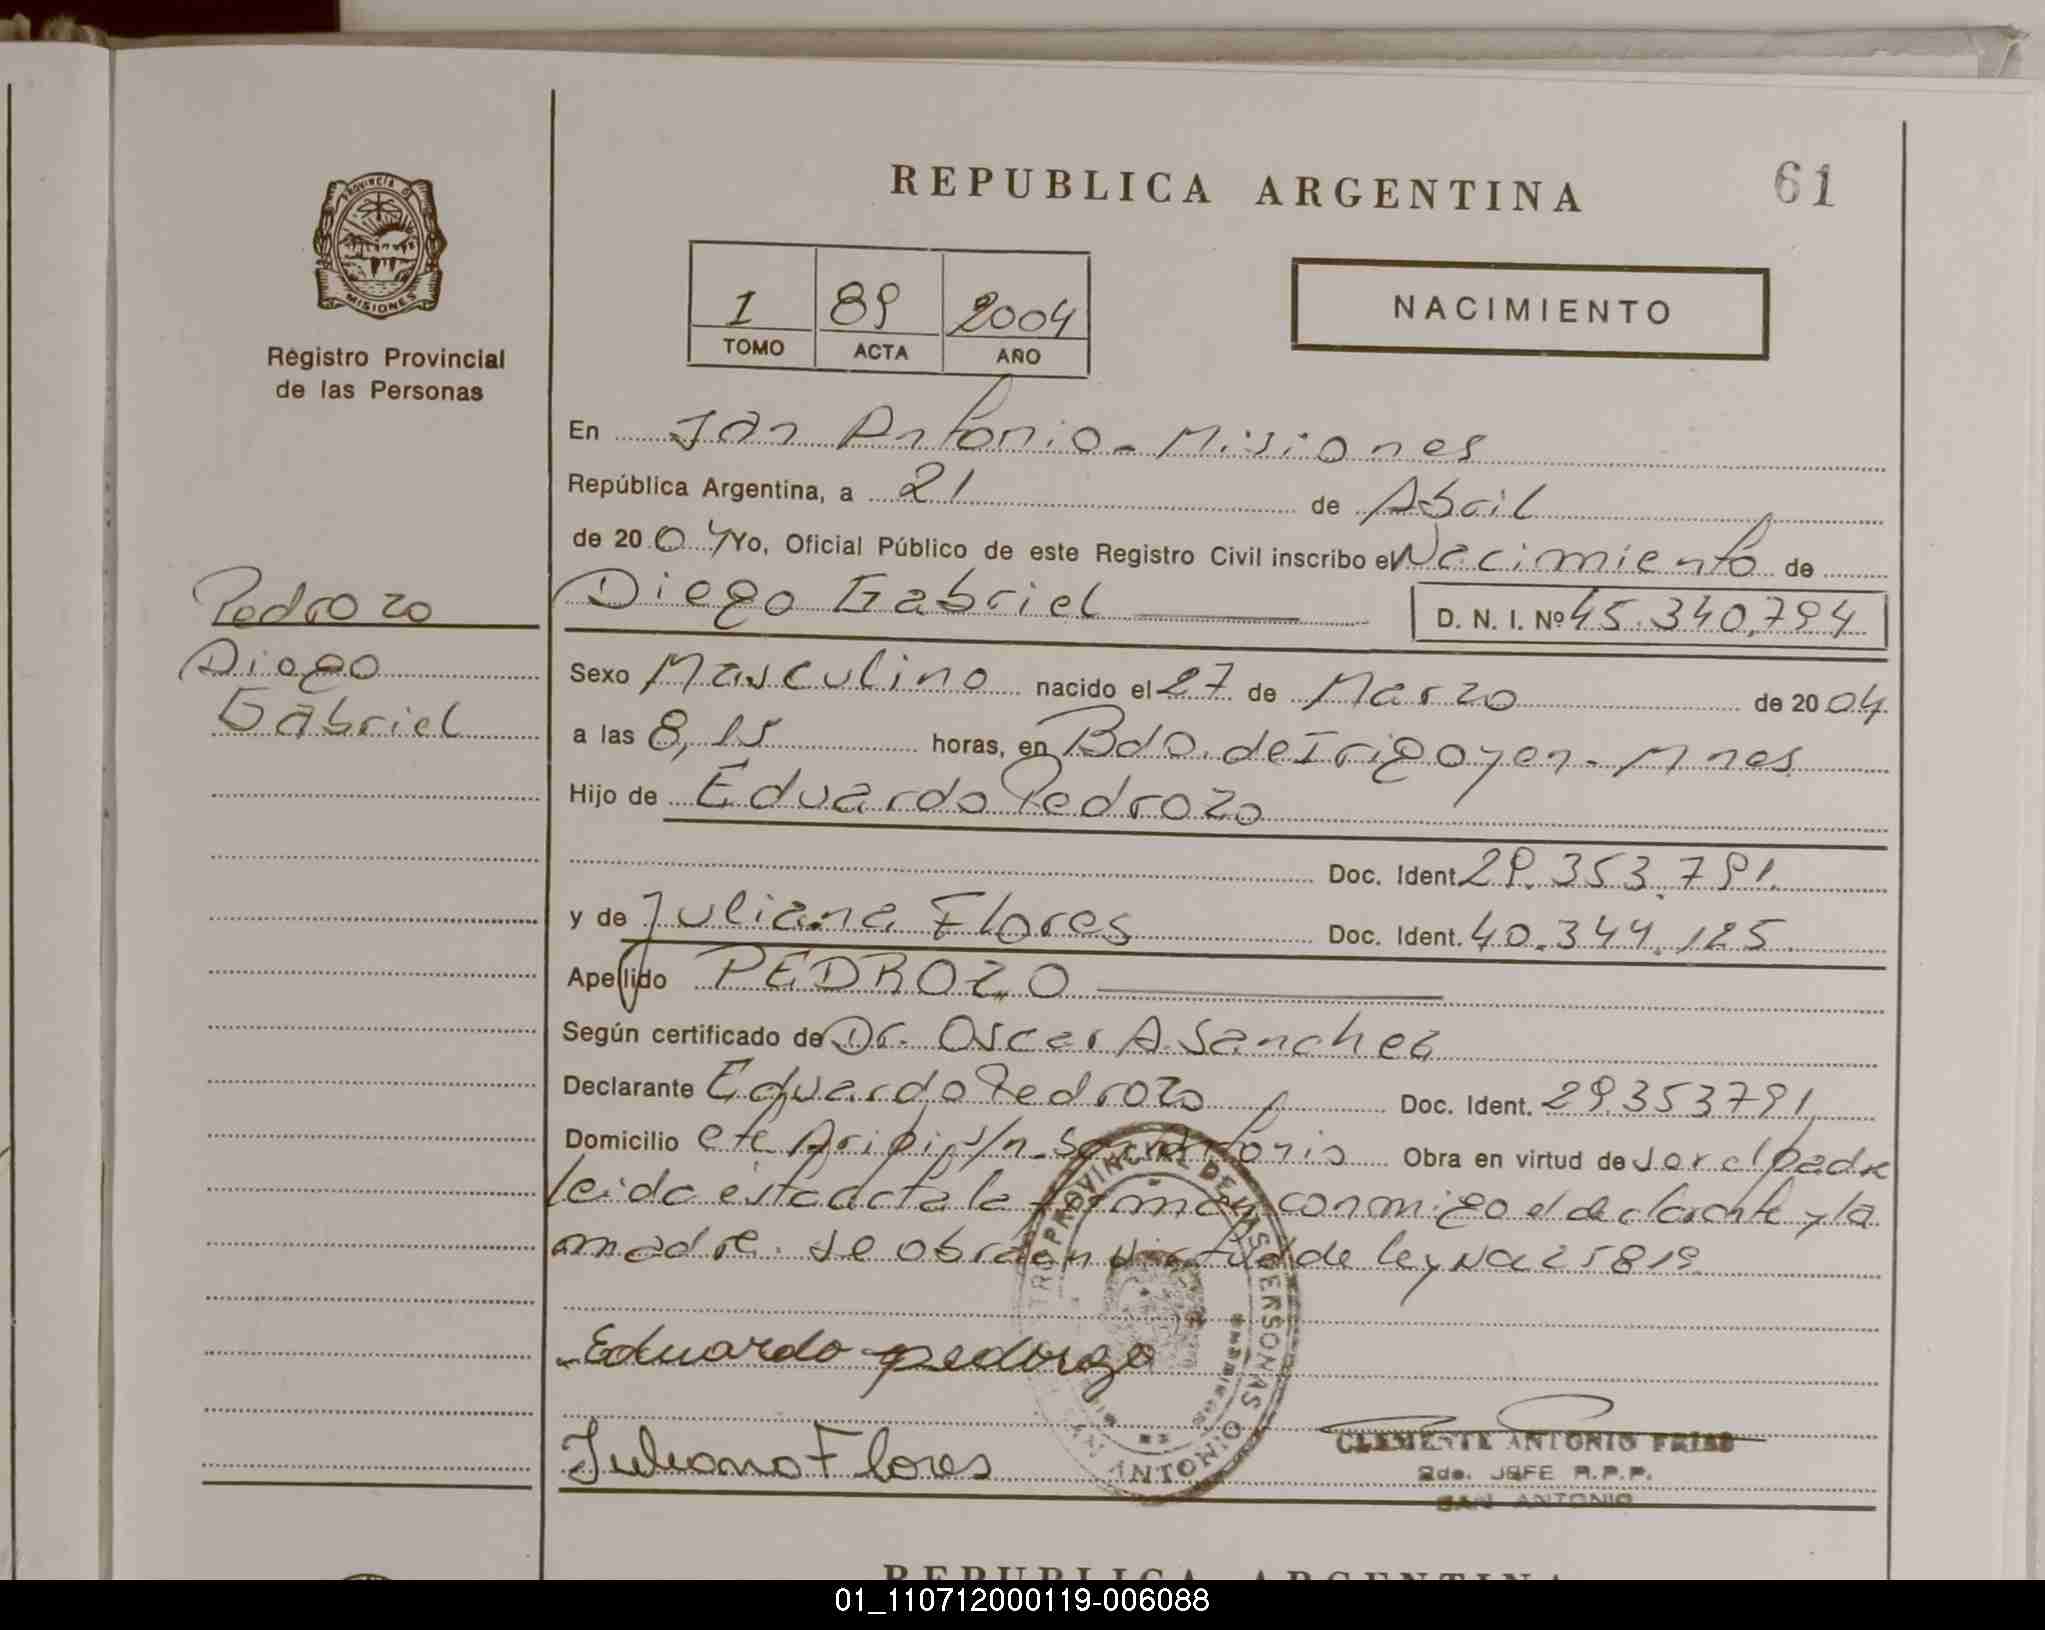 REPUBLICA ARGENTINA
61
PROVINCIA DE
MISIONES
Registro Provincial
de las Personas
1 89 2004
TOMO ACTA AÑO
NACIMIENTO
En San Antonio - Misiones
República Argentina, a 21 de Abril
de 2004 Yo, Oficial Público de este Registro Civil inscribo el Nacimiento de
Diego Gabriel D. N. I. Nº 45.340.794
Pedrozo
Diego
Gabriel
Sexo Masculino nacido el 27 de Marzo de 2004
a las 8,15 horas, en Bdo. de Irigoyen - Mnes
Hijo de Eduardo Pedrozo
Doc. Ident. 29.353.791
y de Juliana Flores Doc. Ident. 40.344.125
Apellido PEDROZO
Según certificado de Dr. Oscar A. Sanchez
Declarante Eduardo Pedrozo Doc. Ident. 29353791
Domicilio s/n - San Antonio Obra en virtud de ser el padre
leida esta acta la firman conmigo el declarante y la
madre. se obra en virtud de ley 25819
Eduardo pedorzo
Juliana Flores
REGISTRO PROVINCIAL DE LAS PERSONAS
SAN ANTONIO
MISIONES
CLEMENTE ANTONIO FRIAS
2do. JEFE R.P.P.
SAN ANTONIO
REPUBLICA ARGENTINA
01_110712000119-006088